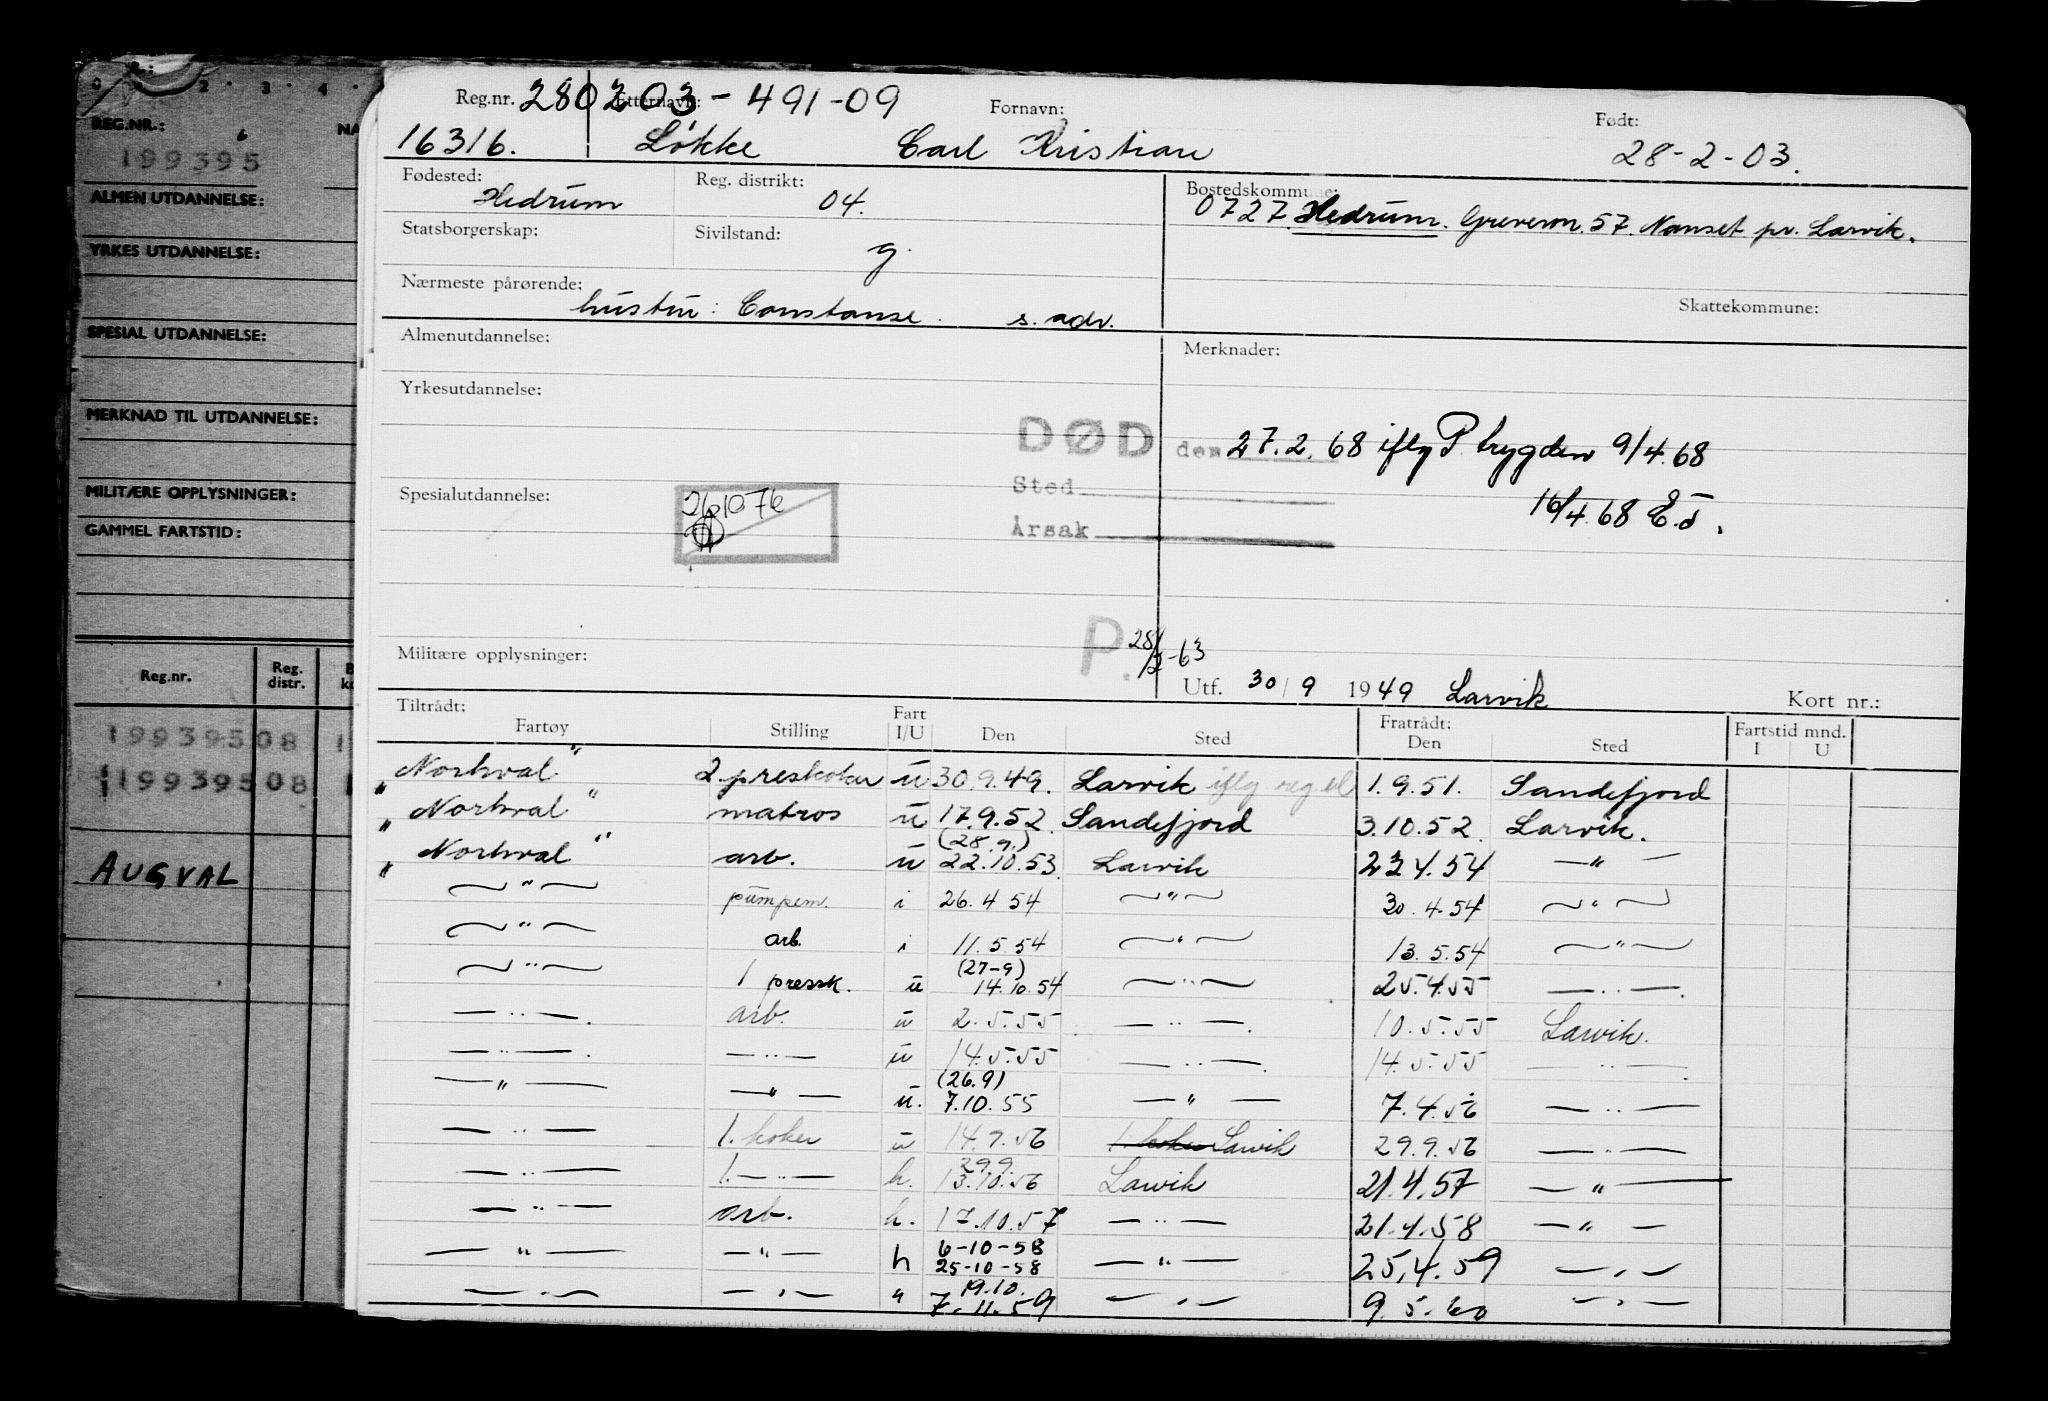 0 2 · 3 · 4 ·
REG.NR.: NA
199395
ALMEN UTDANNELSE:
YRKES UTDANNELSE:
SPESIAL UTDANNELSE:
MERKNAD TIL UTDANNELSE:
MILITÆRE OPPLYSNINGER:
GAMMEL FARTSTID:
Reg.nr. Reg. distr.
19939508 1
19939508
AUGVAL
Reg.nr. 280203-491-09 Etternavn: Fornavn: Født:
16316. Løkke Carl Kristian 28-2-03.
Fødested: Hedrum Reg. distrikt: 04. Bostedskommune: 0727 Hedrum. Grevevn. 57. Nanset pr. Larvik.
Statsborgerskap: Sivilstand: g.
Nærmeste pårørende: hustru: Constanse. s. adr. Skattekommune:
Almenutdannelse: Merknader:
Yrkesutdannelse:
DØD den 27.2.68 ifly P. trygden 9/4.68
Spesialutdannelse: 261076 Sted 16/4.68 E.J.
Årsak
P. 28/2-63
Militære opplysninger: Utf. 30/9 1949 Larvik Kort nr.:
Tiltrådt: Fratrådt:
Fartøy Stilling Fart I/U Den Sted Den Sted Fartstid mnd. I U
"Norhval" 2 preskoker u 30.9.49. Larvik ifly 1.9.51. Sandefjord
"Norhval" matros u 17.9.52. Sandefjord 3.10.52. Larvik.
"Norhval" arb. u (28.9.) 22.10.53. Larvik 23.4.54 — " —
— " — pumpem. i 26.4 54 — " — 30.4.54 — " —
— " — arb. i 11.5 54 — " — 13.5.54 — " —
— " — 1 pressk. u (27-9) 14.10.54 — " — 25.4.55 — " —.
— " —. arb. u 2.5.55 — " —. 10.5.55 Larvik.
— " —. — " — u 14.5.55 — " —. 14.5.55 — " —.
— " — — " — u. (26.9) 7.10.55 — " — 7.4.56 — " —
— " — 1. koker u 14.9.56 1 koker Larvik 29.9.56 — " —
— " — 1. — " — h. 29.9 13.10.56 Larvik 21.4.57 — " —
— " — arb. h. 17.10.57 — " — 21.4.58 — " —
— " — — " — h 6-10-58 25-10-58 — " — 25.4.59 — " —
— " — — " — " 19.10. 7.11.59 — " — 9.5.60 — " —